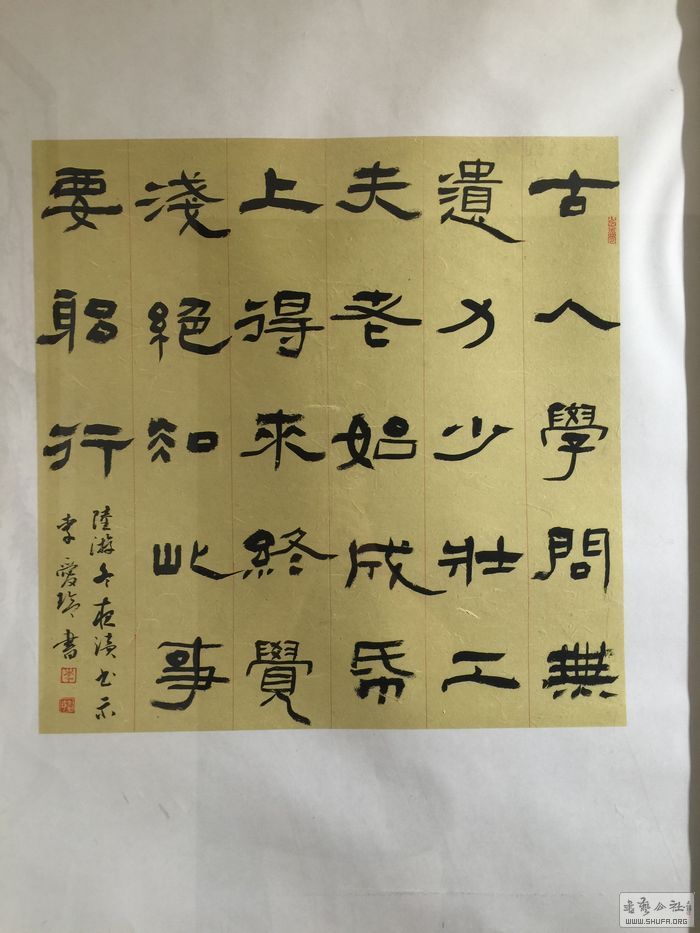 古人學問無
遺力少壯工
夫老始成帋
上得來終覺
淺絕知此事
要躳行
陸游冬夜讀书示
李愛書
书藝公社
WWW.SHUFA.ORG